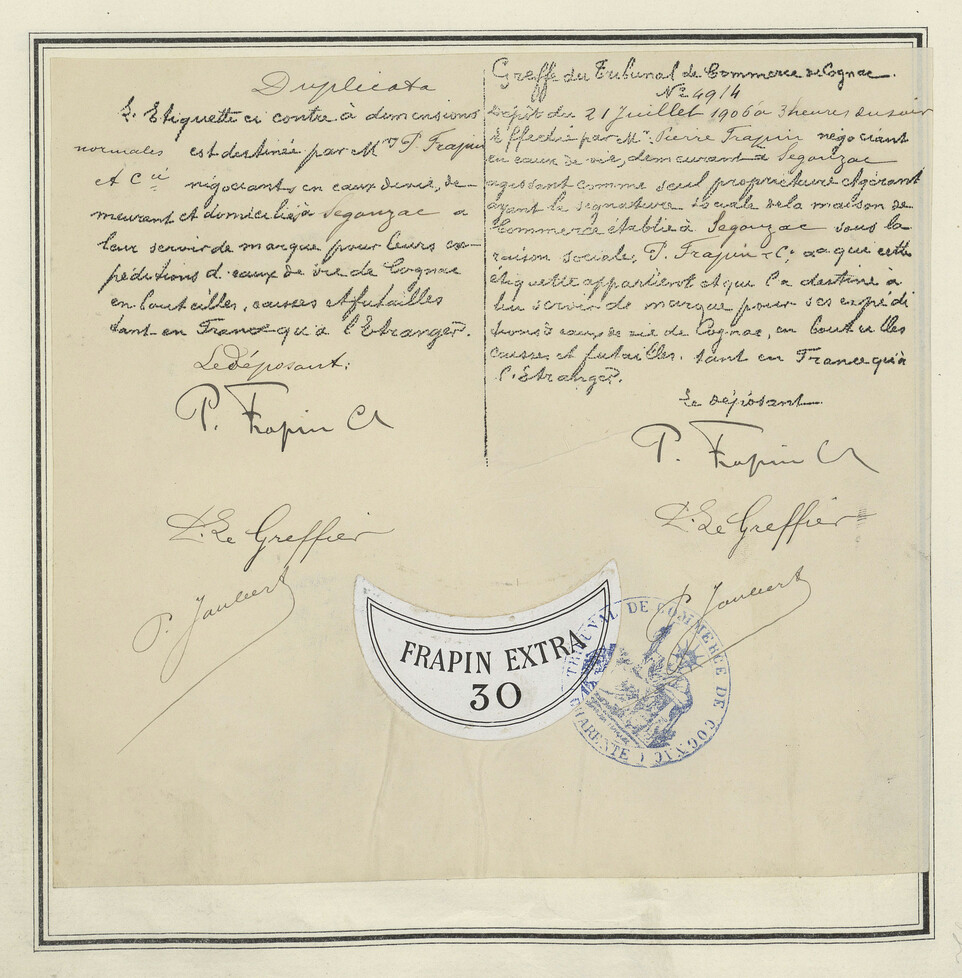 Duplicata
L'Etiquette ci contre à dimensions
normales est destinée par Mrs P. Frapin
et Cie négociants en eaux de vie, de-
meurant et domiciliés à Segonzac a
leur servir de marque pour leurs ex-
péditions d'eaux de vie de Cognac
en bouteilles, caisses et futailles
tant en France qu'a l'Etranger.
Le Déposant:
P. Frapin Cie
Le Greffier
P. Jaubert
Greffe du Tribunal de Commerce de Cognac.
No 4914
Dépôt du 21 Juillet 1906 à 3 heures du soir
Effectué par Mr. Pierre Frapin négociant
en eaux de vie, demeurant à Segonzac
agissant comme seul propriétaire et gérant
ayant la signature sociale de la maison de
Commerce établie à Segonzac sous la
raison sociale, P. Frapin & Cie que cette
étiquette appartient et qu'il a destiné à
lui servir de marque pour ses expédi
tions d'eaux de vie de Cognac, en bouteilles
caisses et futailles. tant en France qu'à
l'Étranger.
Le déposant
P. Frapin Cie
Le Greffier
P. Jaubert
FRAPIN EXTRA
30
TRIBUNAL DE COMMERCE DE COGNAC
CHARENTE